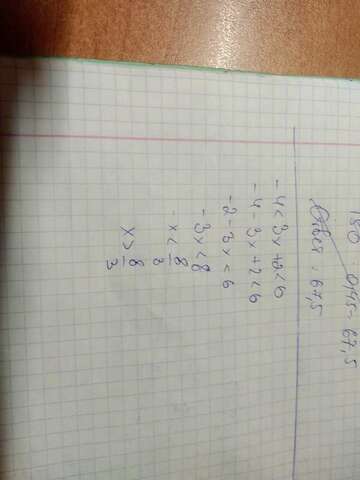 150 · 0,45 = 67,5
Ответ: 67,5
-4<3x+2<6
-4-3x+2<6
-2-3x<6
-3x<8
-x<8/3
x>8/3